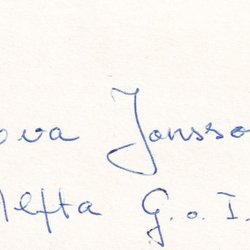 ova Jonsso
Alfta G. o. I.